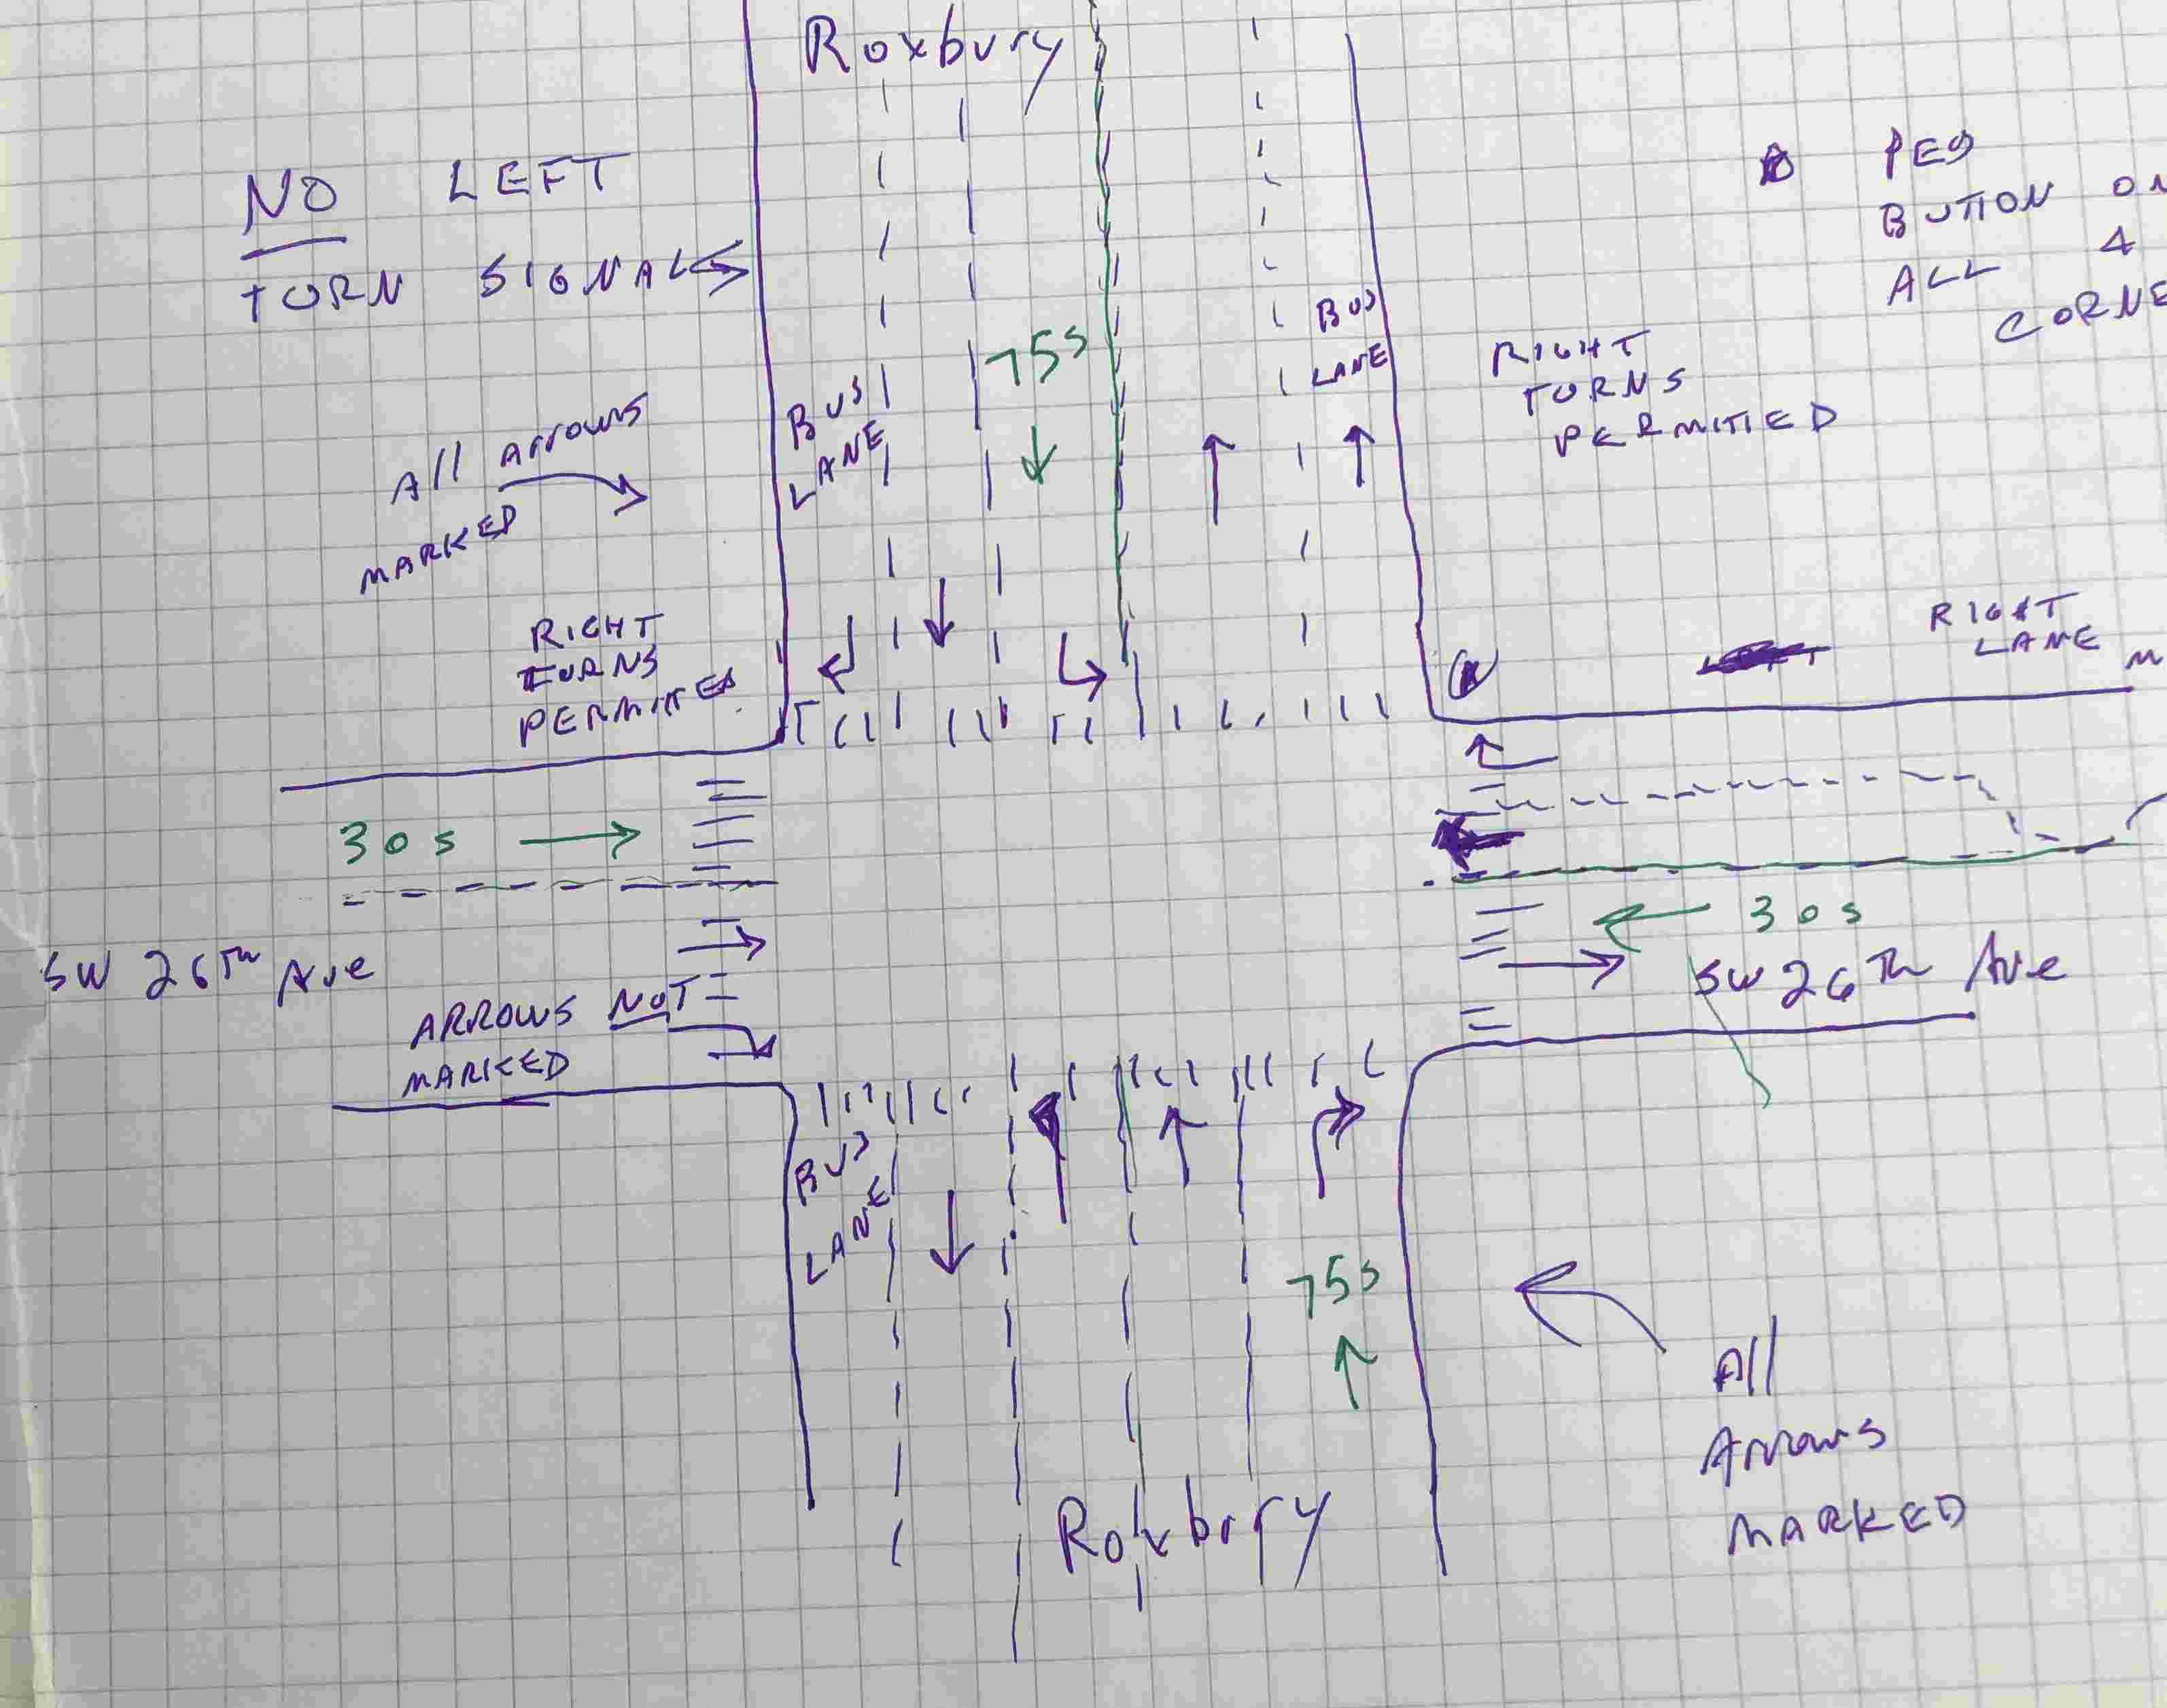 Roxbury
NO LEFT
TURN SIGNAL
PED
BUTTON ON
ALL 4
CORNE
75s
BUS
LANE
RIGHT
TURNS
PERMITIED
All arrows
MARKED
BUS
LANE
RIGHT
TURNS
PERMITTED
RIGHT
LANE M
30s
30s
SW 26TH Ave
SW 26TH Ave
ARROWS NOT
MARKED
BUS
LANE
75s
All
Arrows
MARKED
Roxbury